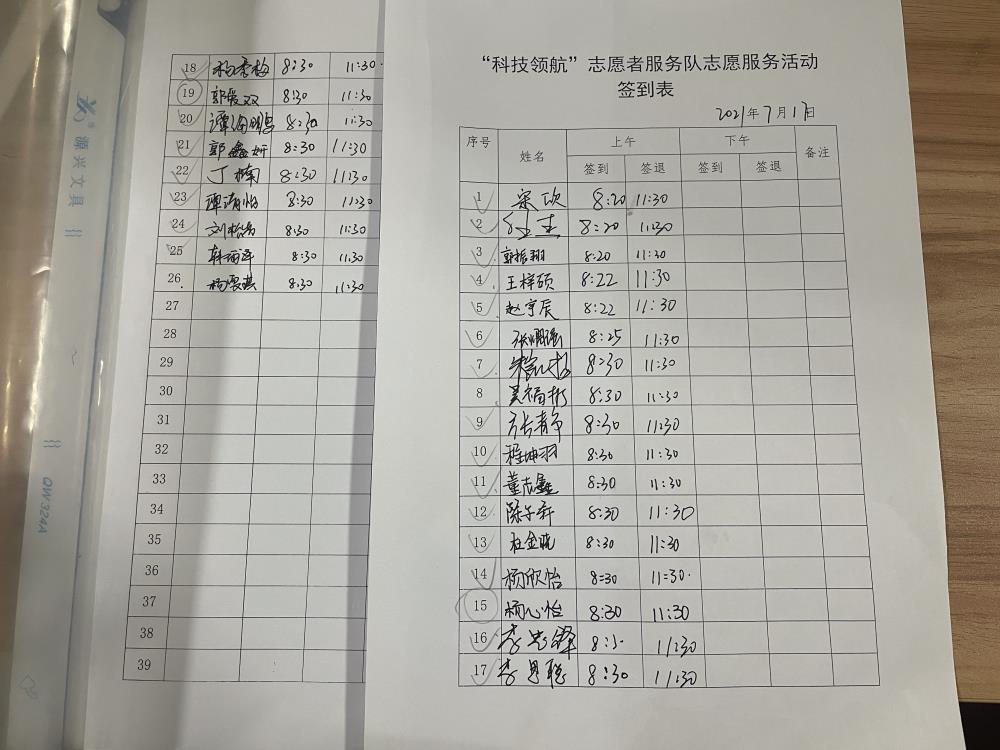 “科技领航”志愿者服务队志愿服务活动
签到表
2021年7月17日
序号 姓名 上午 下午 备注
签到 签退 签到 签退
1 宋欣 8:20 11:30
2 8:20 11:30
3 郭振翔 8:20 11:30
4 王梓硕 8:22 11:30
5 赵宇辰 8:22 11:30
6 8:25 11:30
7 8:30 11:30
8 吴福彬 8:30 11:30
9 8:30 11:30
10 程坤羽 8:30 11:30
11 董志鑫 8:30 11:30
12 陈子轩 8:30 11:30
13 杜金晓 8:30 11:30
14 杨欣怡 8:30 11:30
15 杨心怡 8:30 11:30
16 李思泽 11:30
17 李思聪 8:30 11:30
18 杨 8:30 11:30
19 郭 双 8:30 11:30
20 谭 8:30 11:30
21 郭鑫妍 8:30 11:30
22 丁楠 8:30 11:30
23 谭 8:30 11:30
24 刘 8:30 11:30
25 韩雨泽 8:30 11:30
26 杨 8:30 11:30
27
28
29
30
31
32
33
34
35
36
37
38
39
源兴文具
QW324A